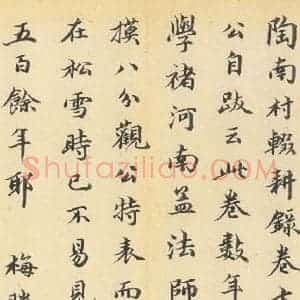 陶南村輟耕錄卷
公自跋云此卷數年
學褚河南孟法師
摸八分觀公特表而
在松雪時已不易見
五百餘年耶 梅
Shufaziliao.COM